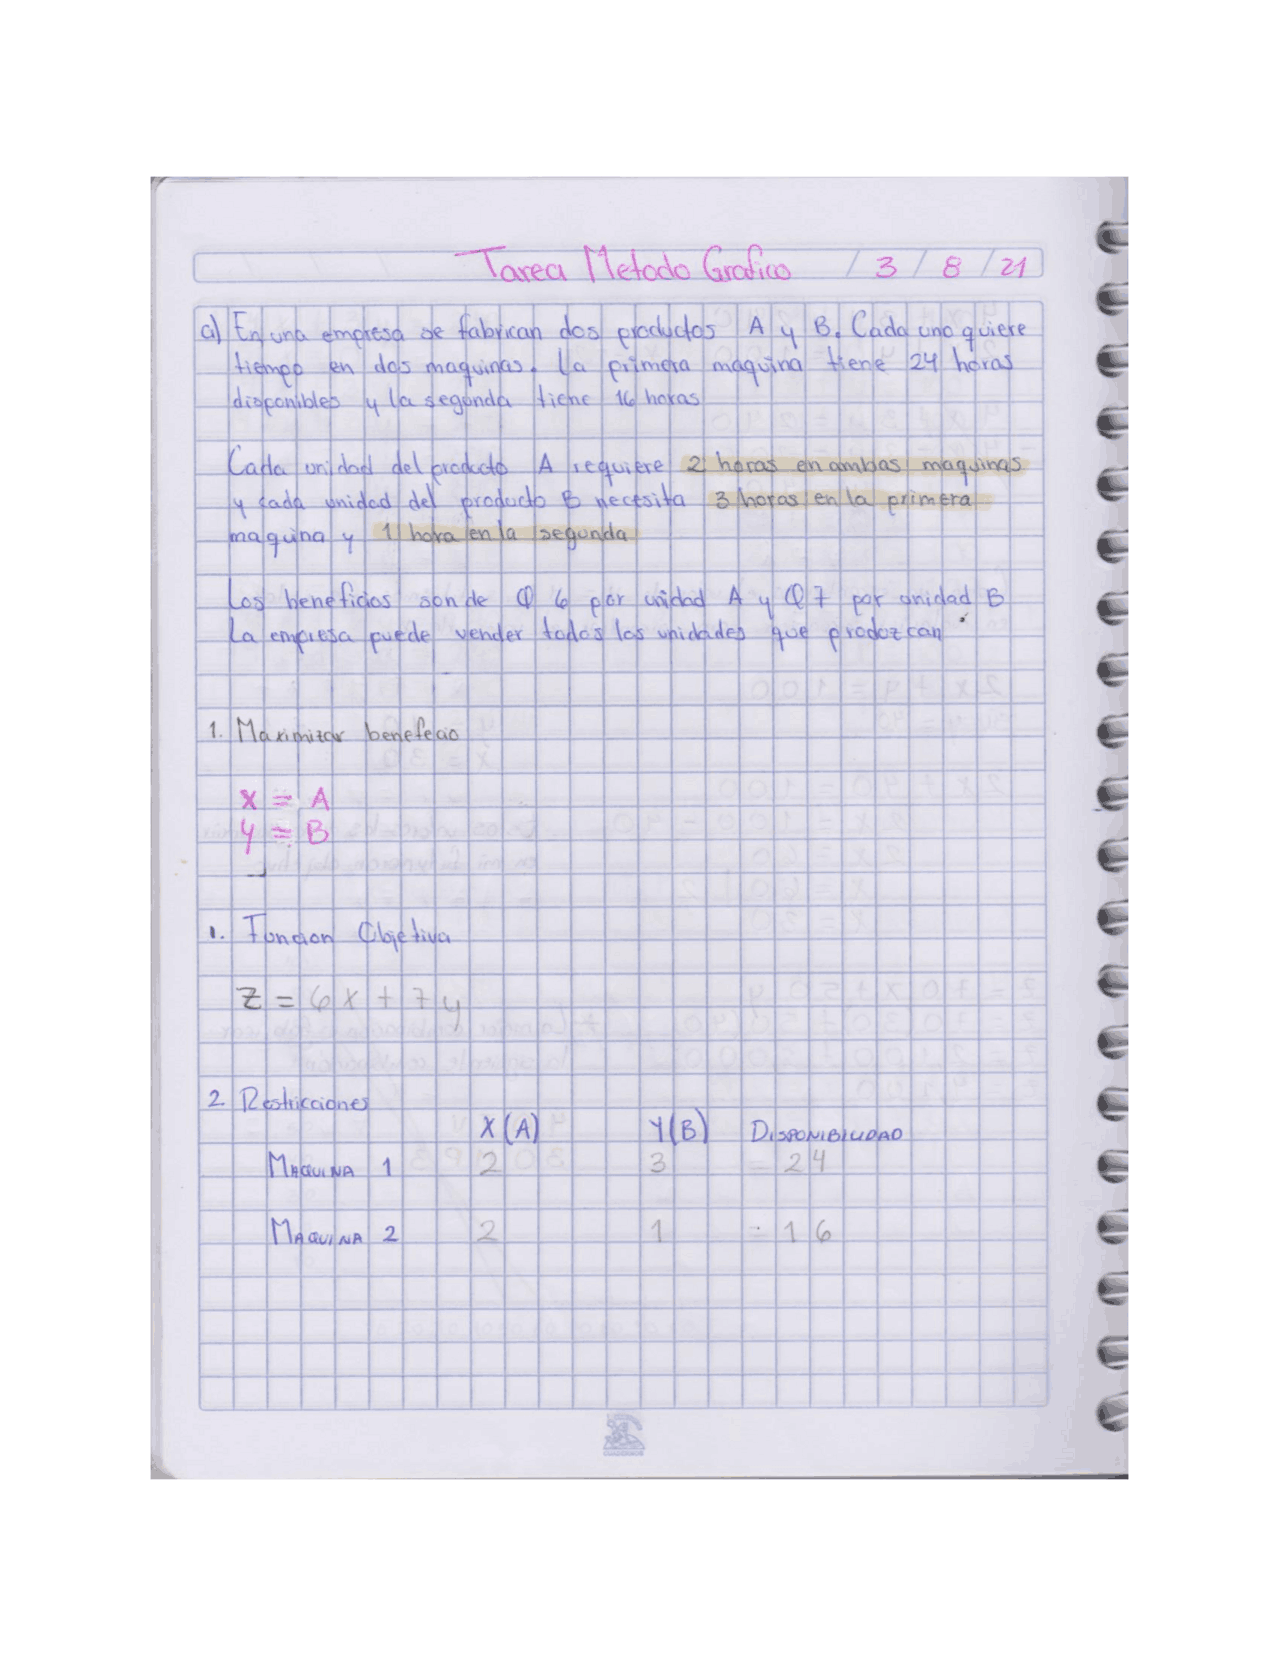 Tarea Metodo Grafico / 3 / 8 / 21
a) En una empresa se fabrican dos productos A y B. Cada uno quiere
tiempo en dos maquinas. La primera maquina tiene 24 horas
disponibles y la segunda tiene 16 horas
Cada unidad del producto A requiere 2 horas en ambas maquinas
y cada unidad del producto B necesita 3 horas en la primera
maquina y 1 hora en la segunda
Los beneficios son de Q 6 por unidad A y Q 7 por unidad B
La empresa puede vender todas las unidades que produzcan.
1. Maximizar benefecio
x = A
y = B
1. Funcion Objetiva
Z = 6x + 7y
2 Restricciones
X(A) Y(B) DISPONIBILIDAD
MAQUINA 1 2 3 = 24
MAQUINA 2 2 1 = 16